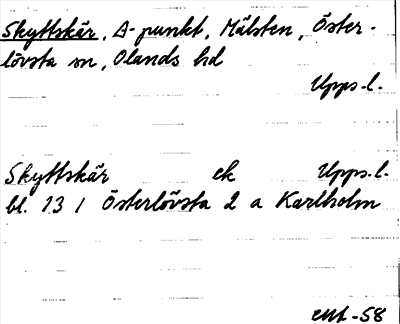 Skyttskär, A-punkt, Målsten, Öster-
lövsta sn, Olands hd
Upps.l.
Skyttskär ek Upps.l.
bl. 13 I Österlövsta 2 a Karlholm
-58